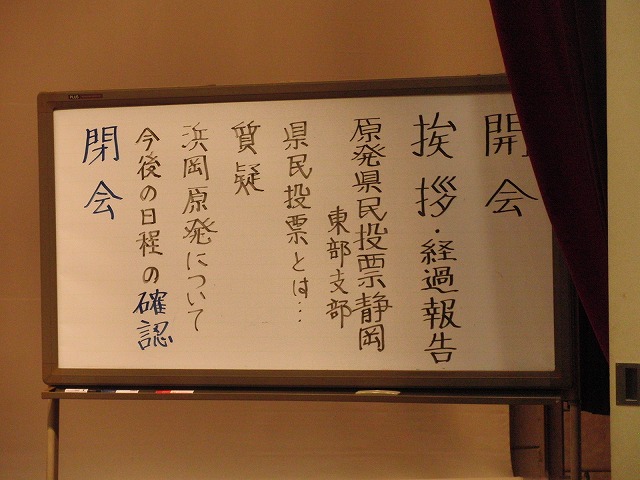 開会
挨拶・経過報告
原発県民投票静岡
東部支部
県民投票とは…
質疑
浜岡原発について
今後の日程の確認
閉会